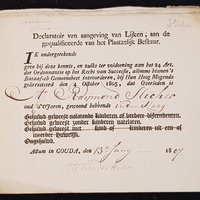 Declaratoir van aangeving van Lijken, aan de
gequalificeerde van het Plaatzelijk Bestuur.
IK ondergetekende
geve bij deze kennis, en zulks ter voldoening aan het 24 Art.
der Ordonnantie op het Recht van Successie, alomme binnen 's
Bataafsch Gemeenebest intevoeren, bij Hun Hoog Mogende
gearresteerd den 4 October 1805, dat Overleden is
Raymond Slicher
oud 50 Jaren, gewoond hebbende
Gehuwd geweest nalatende kinderen of verdere descendenten.
Gehuwd geweest zonder kinderen natelaten.
Gehuwd geweest met kind of kinderen uit een of
meerder Huwelijk.
Ongehuwd.
Actum in GOUDA, den 13 Juny 1807